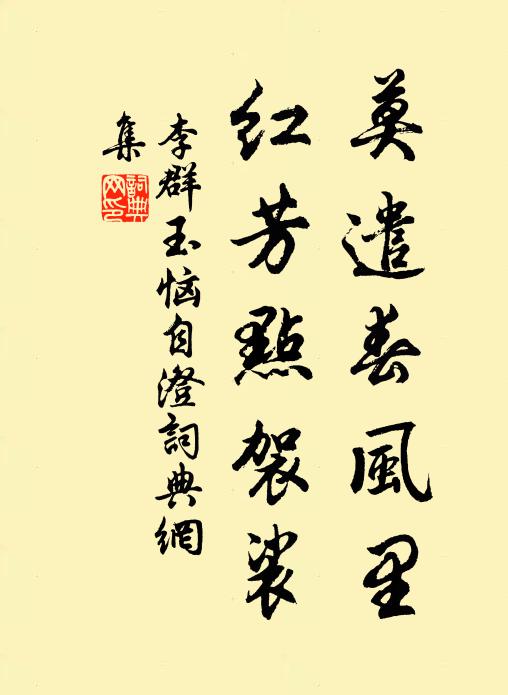 莫遣春風里
紅芳點袈裟
李群玉惱自澄詞典網
集
詞典網印